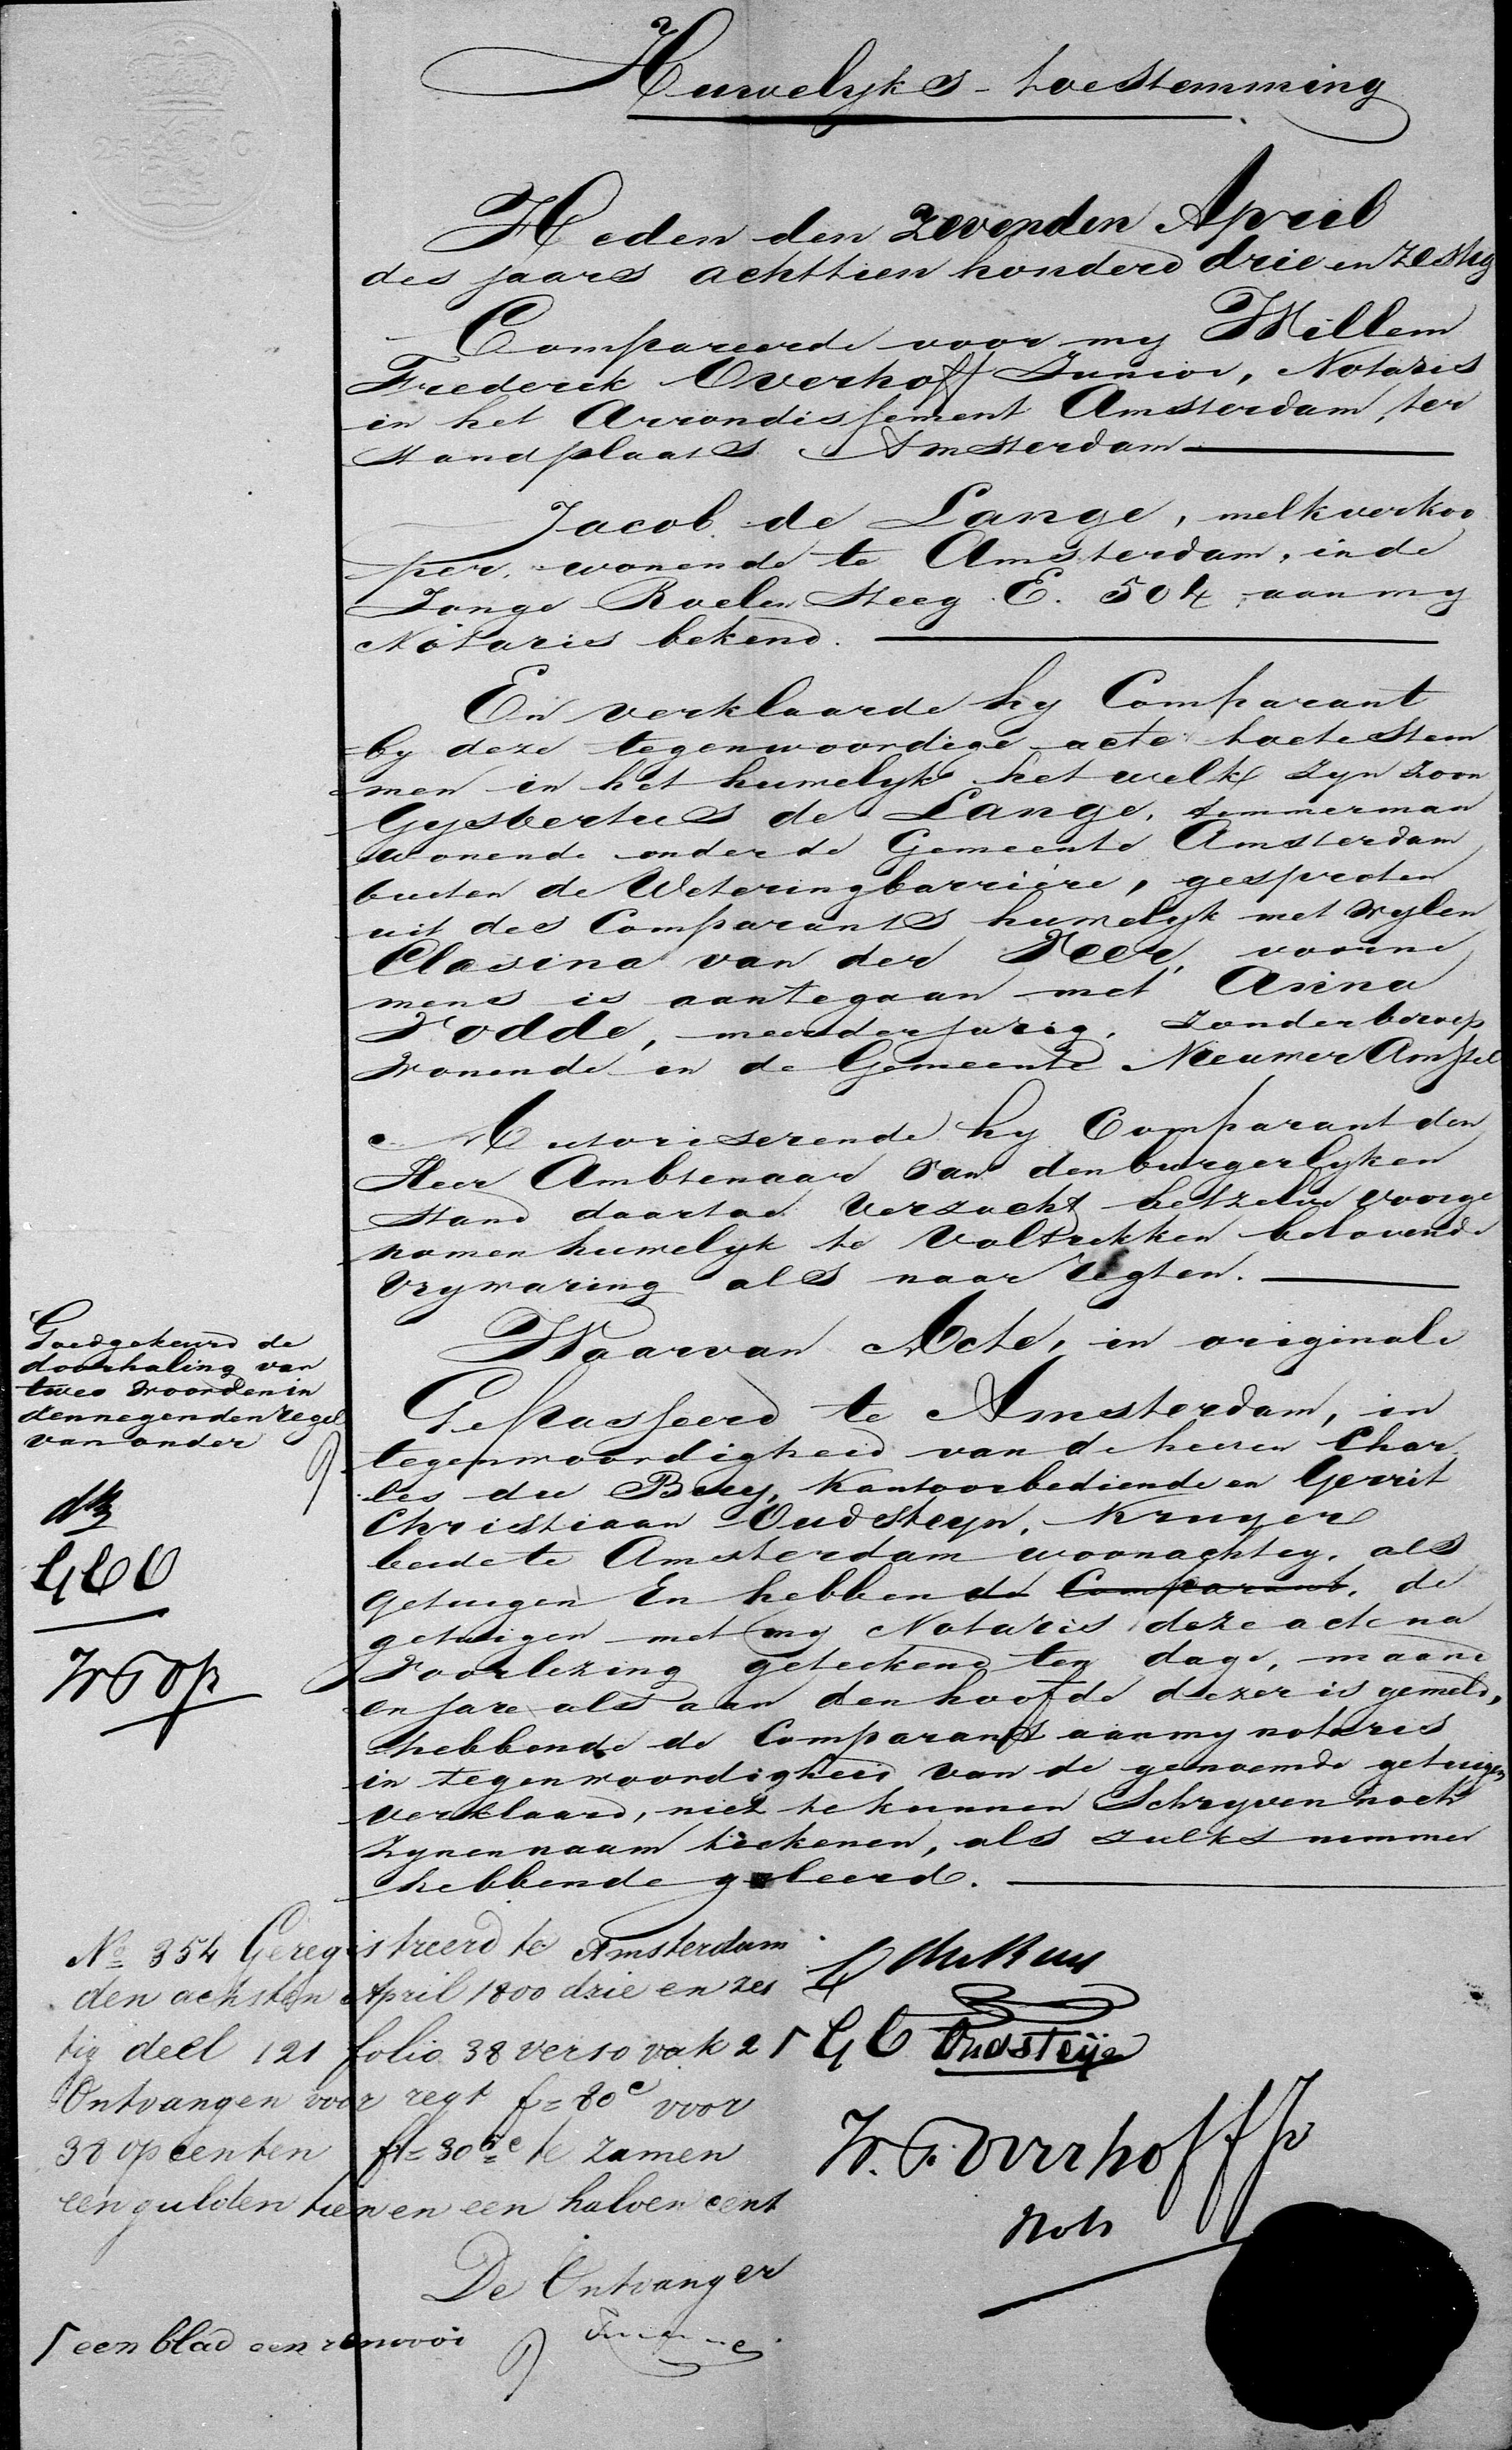 Huwelyks-toestemming
Heden den zevenden April
des jaars achttien honderd drie en zestig
Compareerde voor my Willem
Frederik Overhoff Junior, Notaris
in het Arrondissement Amsterdam, ter
standplaats Amsterdam
Jacob de Lange, melkverkoo
per, wonende te Amsterdam, in de
Jonge Roelen Steeg E. 504, aan my
Notaris bekend.
En verklaarde hy Comparant
by deze tegenwoordige acte toetestem
men in het huwelyk het welk zyn zoon
Gysbertus de Lange, temmerman
wonende onder de Gemeente Amsterdam
buiten de Weteringbarrière, gesproten
uit des Comparants huwelyk met wylen
Clasina van der Veer, voorne
mens is aantegaan met Anna
Vodde, meerderjarig, zonder beroep
wonende in de Gemeente Nieuwer Amstel
Autoriserende hy Comparant den
Heer Ambtenaar van den burgerlyken
stand daartoe verzocht hetzelve voorge
nomen huwelyk te voltrekken belovende
vrywaring als naar regten.
Waarvan Acte, in originale
Gepasseerd te Amsterdam, in
tegenwoordigheid van de heeren Char
les du Buy, Kantoorbediende en Gerrit
Christiaan Oudsteyn, Kruyer
beide te Amsterdam woonachtig, als
getuigen En hebben de Comparant, de
getuigen met my Notaris deze acte na
voorlezing geteekend ten dage, maand
en jare als aan den hoofde dezer is gemeld,
hebbende de Comparant aan my notaris
in tegenwoordigheid van de genoemde getuigen
verklaard, niet te kunnen Schryven noch
zynen naam teekenen, als zulks nimmer
hebbende geleerd.
Goedgekeurd de
doorhaling van
twee woorden in
den negenden regel
van onder
GCO
WFOJr
No 354 Geregistreerd te Amsterdam
den achsten April 1800 drie en zes
tig deel 121 folio 38 verso vak 2
Ontvangen voor regt f = 80c voor
38 opcenten f = 305c te zamen
een gulden tien en een halven cent
De Ontvanger
een blad een renvooi
GC Oudsteijn
W. F. Overhoff Jr
Nots